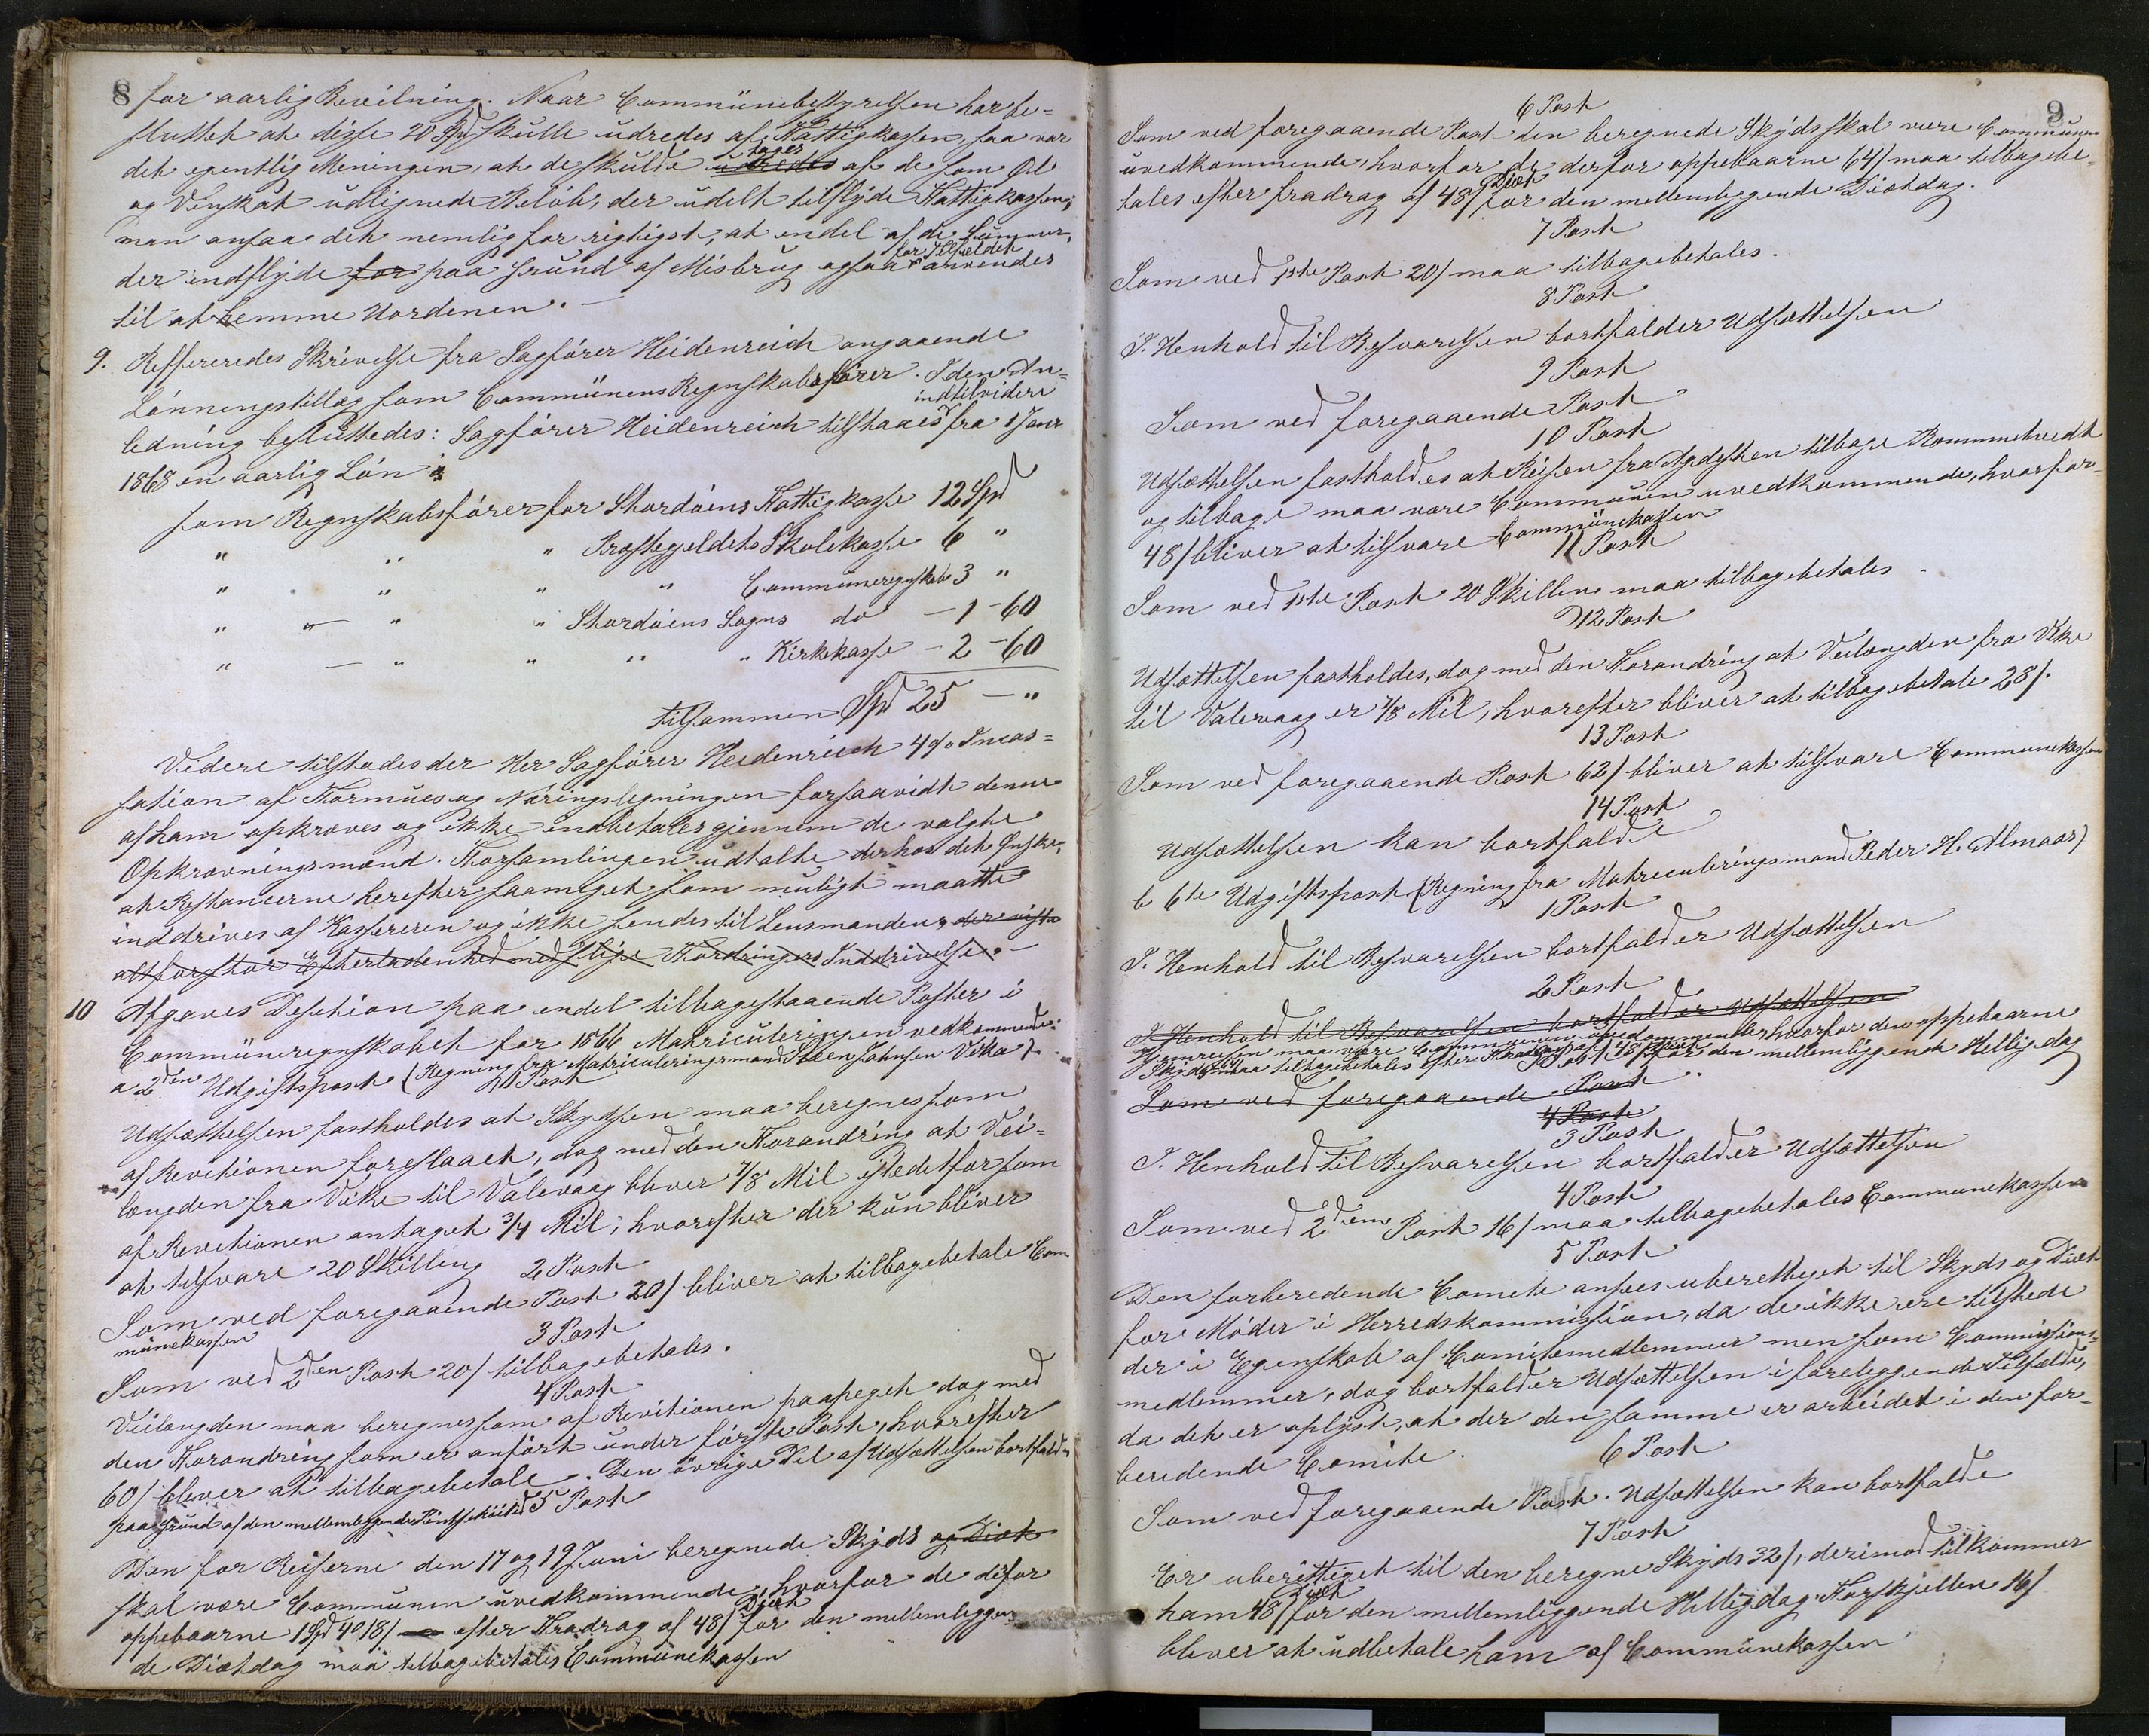 8 for aarlig Bevilning. Naar Communebestyrelsen har be-
sluttet at disse 20 Spd skulle udredes af Fattigkassen, saa var
det egentlig Meningen, at de skulde udredes tages af de som Øl
og Vinskat udlignede Beløb, der udelt tilflyde Fattigkassen;
man ansaa det nemlig for rigtigst, at endel af de Summer,
der indflyde for paa Grund af Misbrug ogsaa for Tilfældet anvendes
til at hemme Uordenen. –
9. Reffereredes Skrivelse fra Sagfører Heidenreich angaaende
Lønningstillæg som Communens Regnskabsfører. I den An-
ledning besluttedes: Sagfører Heidenreich tilstaaes indtilvidere fra 1 Janr
1868 en aarlig Løn
som Regnskabsfører for Stordøens Fattigkasse 12 Spd
" " " Præstegjeldets Skolekasse 6 "
" " " " Communeregnskab 3 "
" – " " Stordøens Sogns do – 1 – 60
" – " " " " Kirkekasse – 2 – 60
tilsammen Spd 25 – "
Videre tilstodes der Her Sagfører Heidenreich 4 % Incas-
sation af Formues og Næringsligningen forsaavidt denne
af ham opkræves og ikke indbetales gjennem de valgte
Opkrævningsmænd. Forsamlingen udtalte derhos det Ønske,
at Restancerne herefter saameget som muligt maatte
inddrives af Kassereren og ikke sendes til Lensmanden, der viste
altfor stor Efterladenhed med slige Fordringers Inddrivelse. –
10 Afgaves Desition paa endel tilbagestaaende Poster i
Communeregnskabet for 1866 Matriculeringen vedkommende:
a 2den Udgiftspost (Regning fra Matriculeringsmand Steen Johnsen Vika).
1 Post
Udsættelsen fastholdes at Skydsen maa beregnes som
af Revitionen foreslaaet, dog med den Forandring at Vei-
længden fra Vike til Valevaag bliver 7/8 Mil istedetfor som
af Revitionen antaget 3/4 Mil, hvorefter der kun bliver
at tilsvare 20 Skilling
2 Post
Som ved foregaaende Post 20/ bliver at tilbagebetale Com
munekassen
3 Post
Som ved 2den Post 20/ tilbagebetales.
4 Post
Veilængden maa beregnes som af Revitionen paapeget dog med
den Forandring som er anført under første Post, hvorefter
60/ bliver at tilbagebetale. Den øvrige Del af Udsættelsen bortfalder
paa Grund af den mellemliggende
5 Post
Den for Reiserne den 17 og 19 Juni beregnede Skyds og Diæt
skal være Communen uvedkommende, hvorfor de disfor
oppebaarne 1 Spd 4 18/ efter Fradrag af 48/ Diæt for den mellemliggen-
de Diætdag maa tilbagebetales Communekassen
9
6 Post
Som ved foregaaende Post den beregnede Skyds skal være Communen
uvedkommende, hvorfor de derfor oppebaarne 64/ maa tilbagebe-
tales efter fradrag af 48/ Diæt for den mellemliggende Diætdag.
7 Post
Som ved 1ste Post 20/ maa tilbagebetales.
8 Post
I Henhold til Besvarelsen bortfalder Udsættelsen
9 Post
Som ved foregaaende Post
10 Post
Udsættelsen fastholdes at Reisen fra Agdesten tilbage Rommetvedt
og tilbage maa være Communen uvedkommende, hvorfor
48/ bliver at tilsvare Communekassen
11 Post
Som ved 1ste Post 20 Skilling maa tilbagebetales
12 Post
Udsættelsen fastholdes, dog med den Forandring at Veilængden fra Vike
til Valevaag er 7/8 Mil, hvorefter bliver at tilbagebetale 28/.
13 Post
Som ved foregaaende Post 62/ bliver at tilsvare Communekassen
14 Post
Udsættelsen kan bortfalde
b 6te Udgiftspost (Regning fra Matriculeringsmand Peder H. Almaas)
1 Post
I Henhold til Besvarelsen bortfalder Udsættelsen
2 Post
I Henhold til Besvarelsen bortfalder Udsættelsen
maa være Communen uvedkommende, hvorfor den oppebaarne
Skyds maa tilbagebetales efter Fradrag af 48/ for den mellemliggende Helligdag
Som ved foregaaende Post
4 Post
3 Post
I Henhold til Besvarelsen bortfalder Udsættelsen
4 Post
Som ved 2den Post 16/ maa tilbagebetales Communekassen
5 Post
Den forberedende Comete ansees uberettiget til Skyds og Diæt
for Møder i Herredskommission, da de ikke ere tilstede
der i Egenskab af Comitemedlemmer men som Commissions-
medlemmer, dog bortfalder Udsættelsen i foreliggende Tilfælde,
da det er oplyst, at der den samme er arbeidet i den for-
beredende Comite.
6 Post
Som ved foregaaende Post. Udsættelsen kan bortfalde
7 Post
Er uberettiget til den beregne Skyds 32/, derimod tilkommer
ham 48/ Diæt for den mellemliggende Helligdag. Forskjellen 16/
bliver at udbetale ham af Communekassen